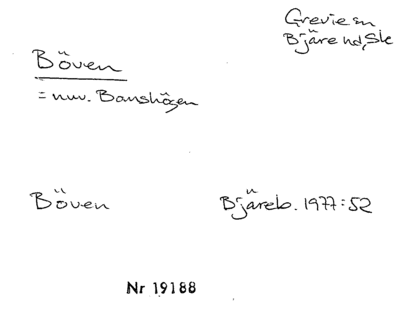 Grevie sn
Bjäre hd, Sk
Böven
= nuv. Banshögen
Böven Bjäreb. 1977:52
Nr 19188